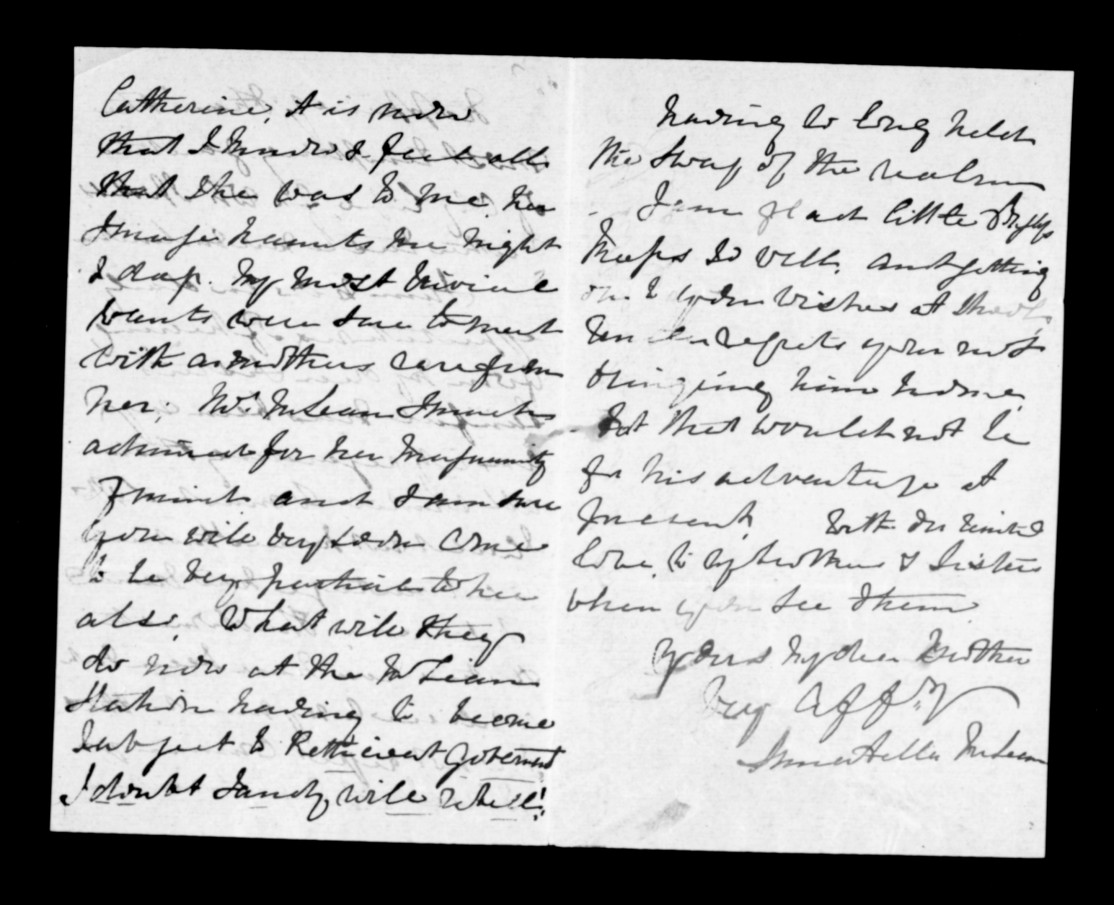 Catherine, it is now
that I know & feel all
that she was to me her
Image haunts me night
& day. My most trivial
wants were sure to meet
with a mothers care from
her. Mr. McLean I much
admired for her magnanimity
of mind and I am sure
you will very soon come
to be very partial to her
also. What will they
do now at the McLean
Station having to become
Subject to Government
I doubt Sandy will rebell!
having so long held
the Sway of the realm
I am glad little
keeps so well. and getting
on to your wishes at
regrets your not
bringing him home
But that would not be
for his advantage at
present. With our united
love to my brothers & Sisters
when you see them
Yours my dear Brother
Very Affly
Annabella McLean